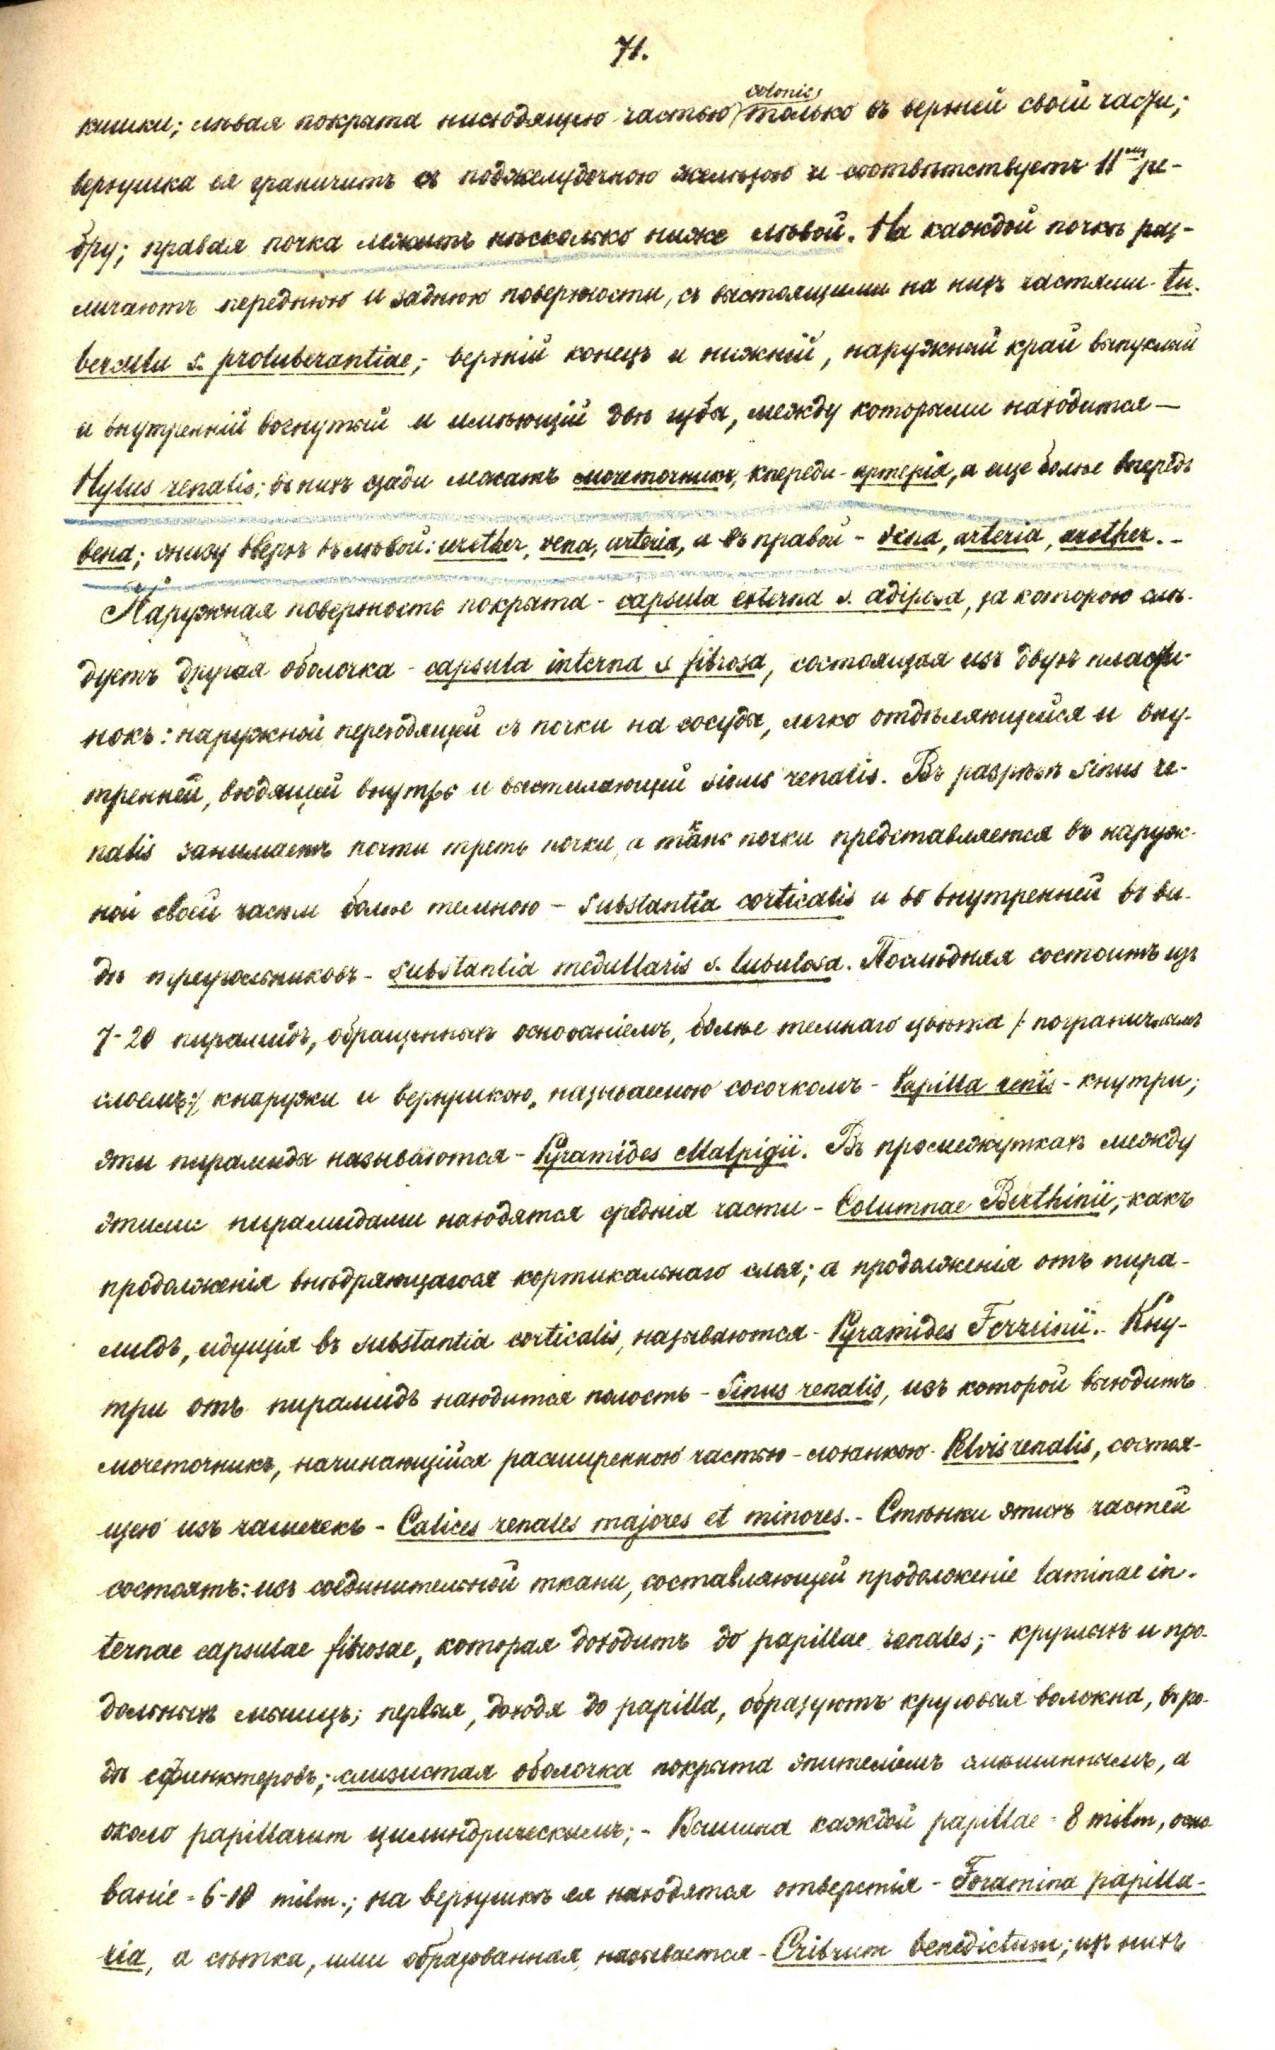 71.
кишки; лѣвая покрыта нисходящею частью colonis только въ верхней своей части;
верхушка ея граничитъ съ поджелудочною железою и соотвѣтствуетъ 11му ре-
бру; правая почка лежитъ нѣсколько ниже лѣвой. На каждой почкѣ раз-
личаютъ переднюю и заднюю поверхности, съ выстоящими на нихъ частями- tu-
bercula s. protuberantiae; верхній конецъ и нижній, наружный край выпуклый
и внутренній вогнутый и имѣющій двѣ губы, между которыми находится —
Hylus renalis; въ нихъ сзади лежатъ мочеточникъ, кпереди - артерія, а еще болѣе впередъ
вена; снизу вверхъ въ лѣвой: urether, vena, arteria, и въ правой - vena, arteria, urether. -
Наружная поверхность покрыта - capsula externa s. adiposa, за которою слѣ-
дуетъ другая оболочка - capsula interna s fibrosa, состоящая изъ двухъ пласти-
нокъ: наружной переходящей съ почки на сосуды, легко отдѣляющейся и вну-
тренней, входящей внутрь и выстилающей sinus renalis. Въ разрѣзѣ sinus re-
nalis занимаетъ почти треть почки, а ткань почки представляется въ наруж-
ной своей части болѣе темною - substantia corticalis и во внутренней въ ви-
дѣ треугольниковъ - substantia medullaris s. tubulosa. Послѣдняя состоитъ изъ
7-20 пирамидъ, обращенныхъ основаніемъ, болѣе темнаго цвѣта /: пограничнымъ
слоемъ:/ кнаружи и верхушкою, называемою сосочкомъ - Papilla renis - кнутри;
эти пирамиды называются - Pyramides Malpigii. Въ промежуткахъ между
этими пирамидами находятся среднія части - Columnae Berthinii, - какъ
продолженія внѣдряющагося кортикальнаго слоя; а продолженія отъ пира-
мидъ, идущія въ substantia corticalis, называются - Pyramides Ferreinii. - Кну-
три отъ пирамидъ находится полость - Sinus renalis, изъ которой выходитъ
мочеточникъ, начинающійся расширенною частью - лоханкою - Pelvis renalis, состоя-
щею изъ чашечекъ - Calices renales majores et minores. - Стѣнки этихъ частей
состоятъ: изъ соединительной ткани, составляющей продолженіе laminae in-
ternae capsulae fibrosae, которая доходитъ до papillae renales; - круглыхъ и про-
дольныхъ мышцъ; первыя, доходя до papilla, образуютъ круговыя волокна, въ ро-
дѣ сфинктеровъ; слизистая оболочка покрыта эпителіемъ смѣшаннымъ, а
около papillarum цилиндрическимъ; - Вышина каждой papillae - 8 milm, осно-
ваніе - 6-10 milm.; на верхушкѣ ея находятся отверстія - Foramina papilla-
ria, а сѣтка, ими образованная, называется - Cribrum benedictum; изъ нихъ